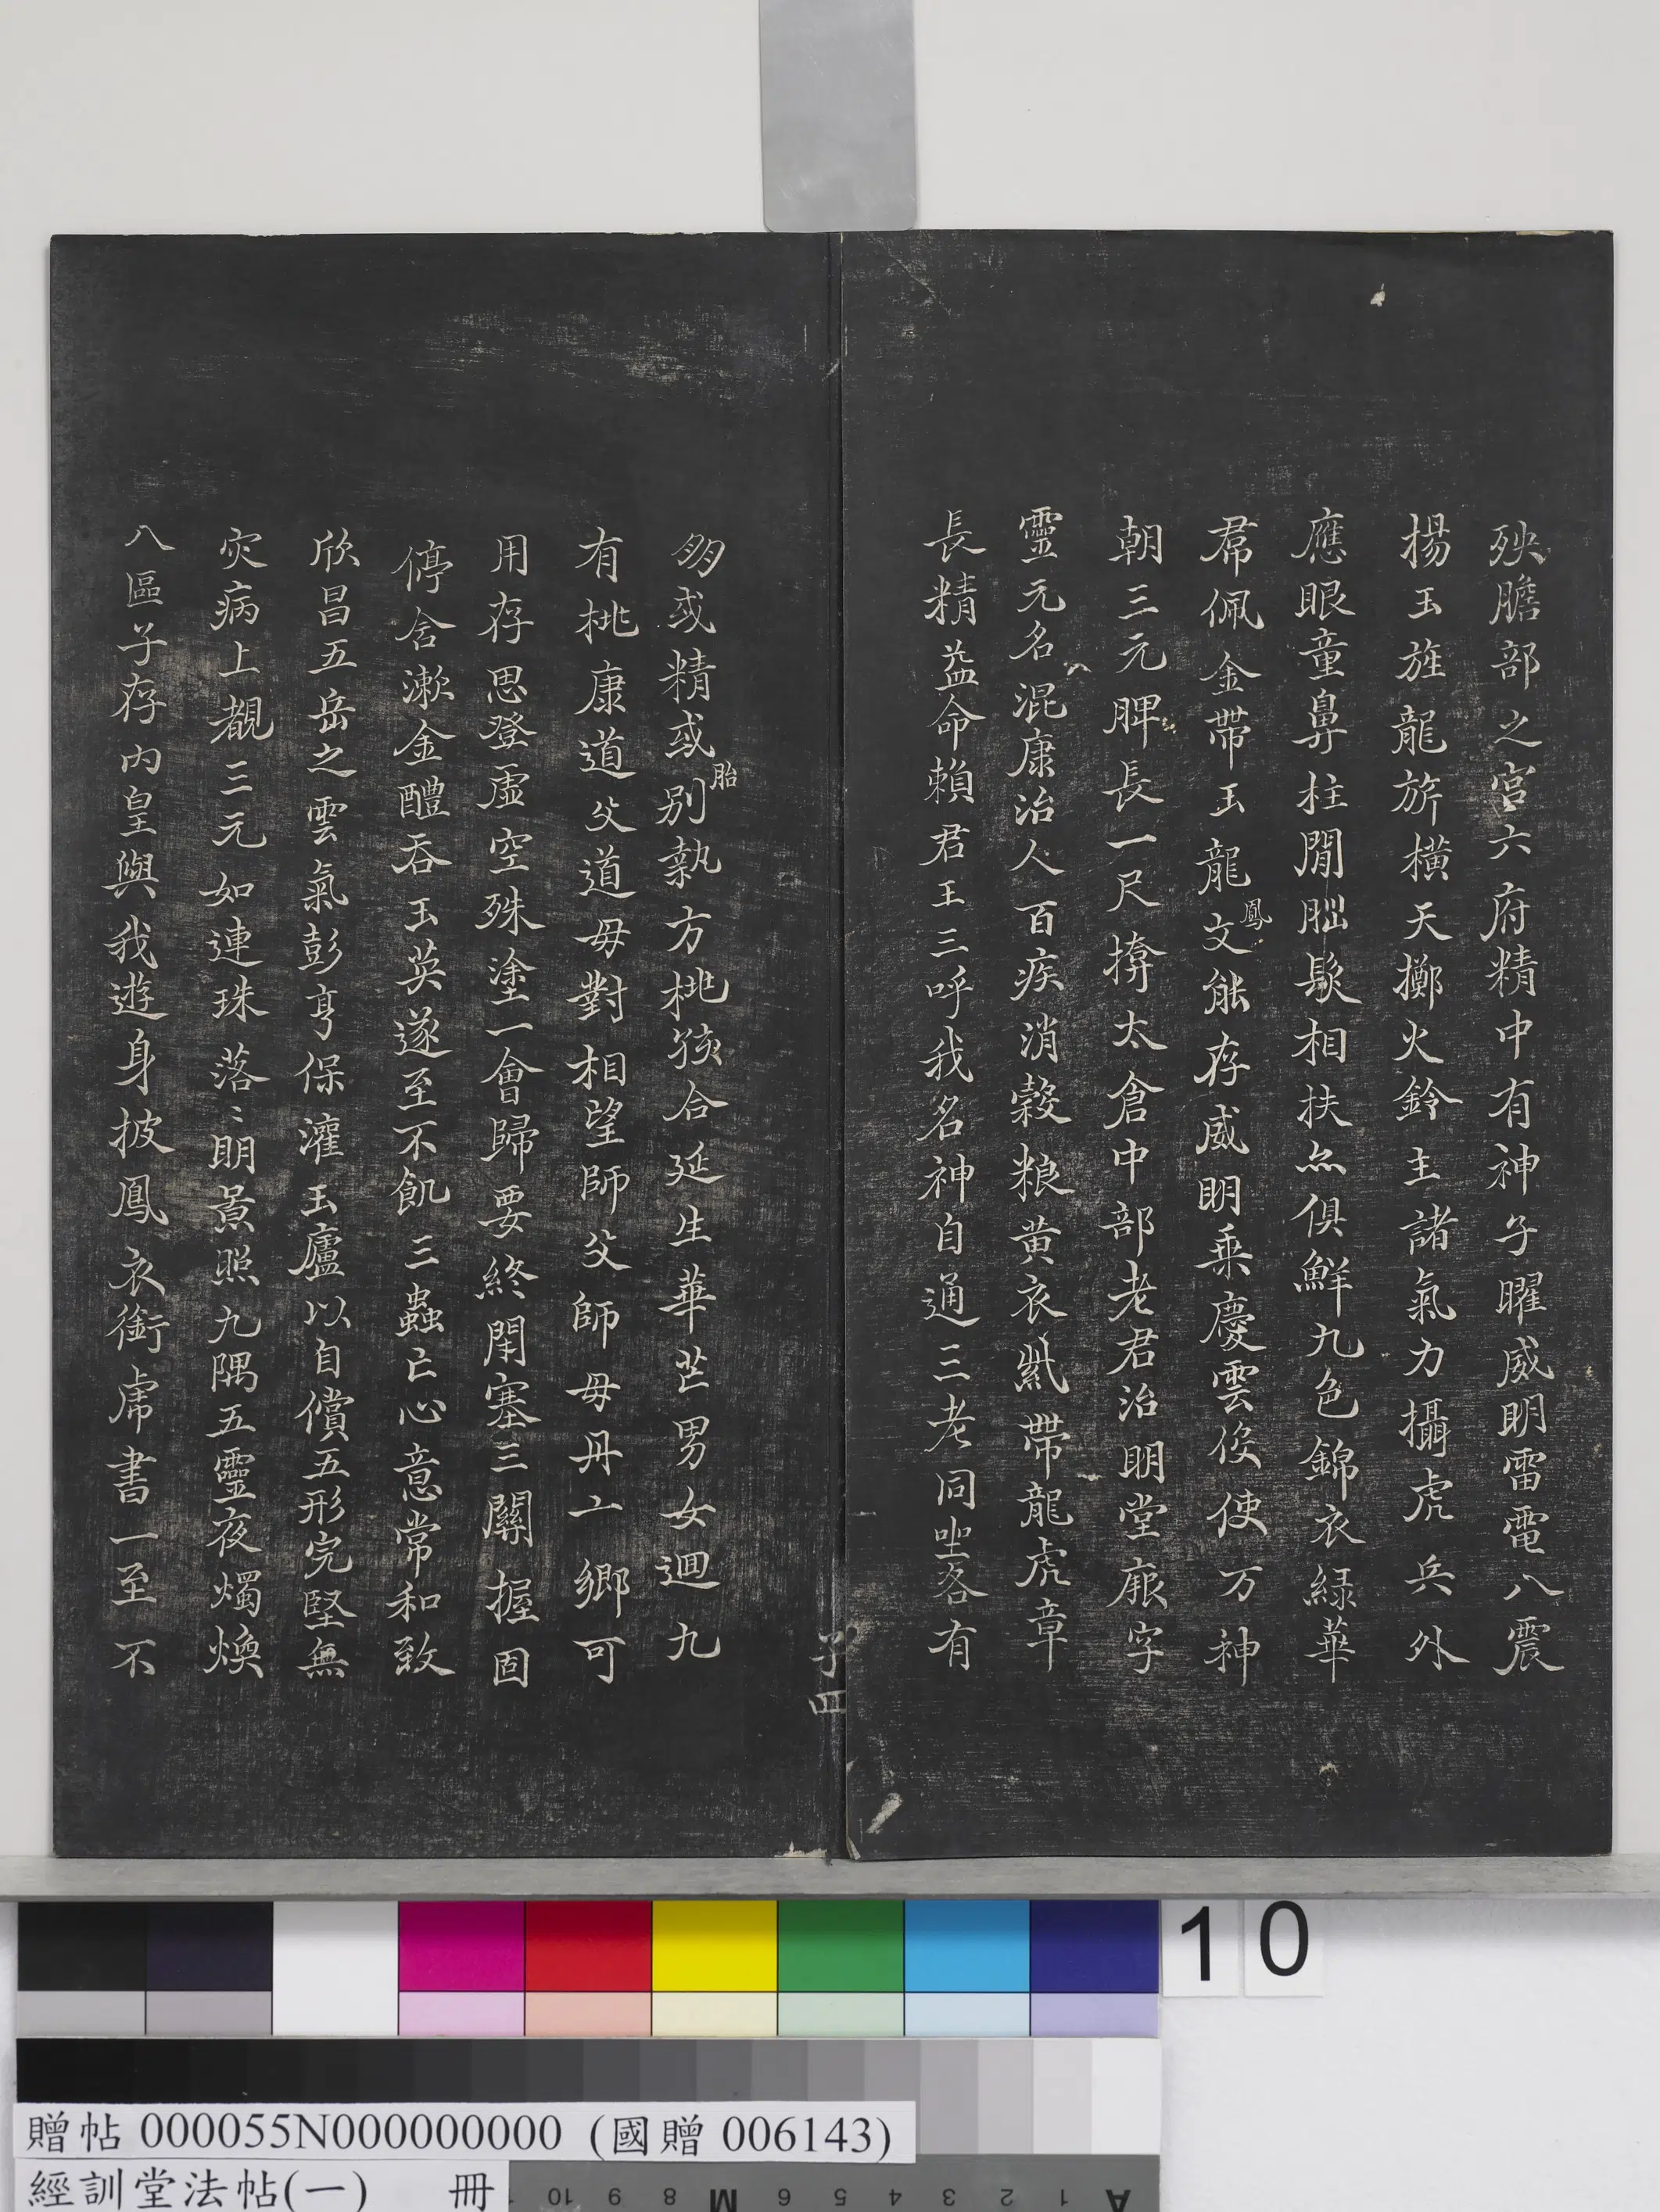 殃膽部之宮六府精中有神子曜威明雷電八震
揚玉旌龍旂橫天擲火鈴主諸氣力攝虎兵外
應眼童鼻柱間䏨髮相扶亦俱鮮九色錦衣綠華
帬佩金帶玉龍文能存威明乘慶雲役使万神
鳳
朝三元脾長一尺揜太倉中部老君治明堂厥字
靈元名混康治人百疾消穀粮黃衣紫帶龍虎章
長精益命賴君王三呼我名神自通三老同坐各有
朋或精或別執方桃孩合延生華芒男女迴九
胎
有桃康道父道毋對相望師父師毋丹亠鄉可
用存思登虛空殊塗一會歸要終閉塞三關握固
停含漱金醴吞玉英遂至不飢三蟲亡心意常和致
欣昌五岳之雲氣彭亨保灌玉廬以自償五形完堅無
灾病上觀三元如連珠落〻明景照九隅五靈夜燭煥
八區子存內皇與我遊身披鳳衣銜虎書一至不
子四
10
贈帖 000055N000000000 (國贈 006143)
經訓堂法帖(一) 冊
10 9 8 M 6 5 4 3 2 1 A